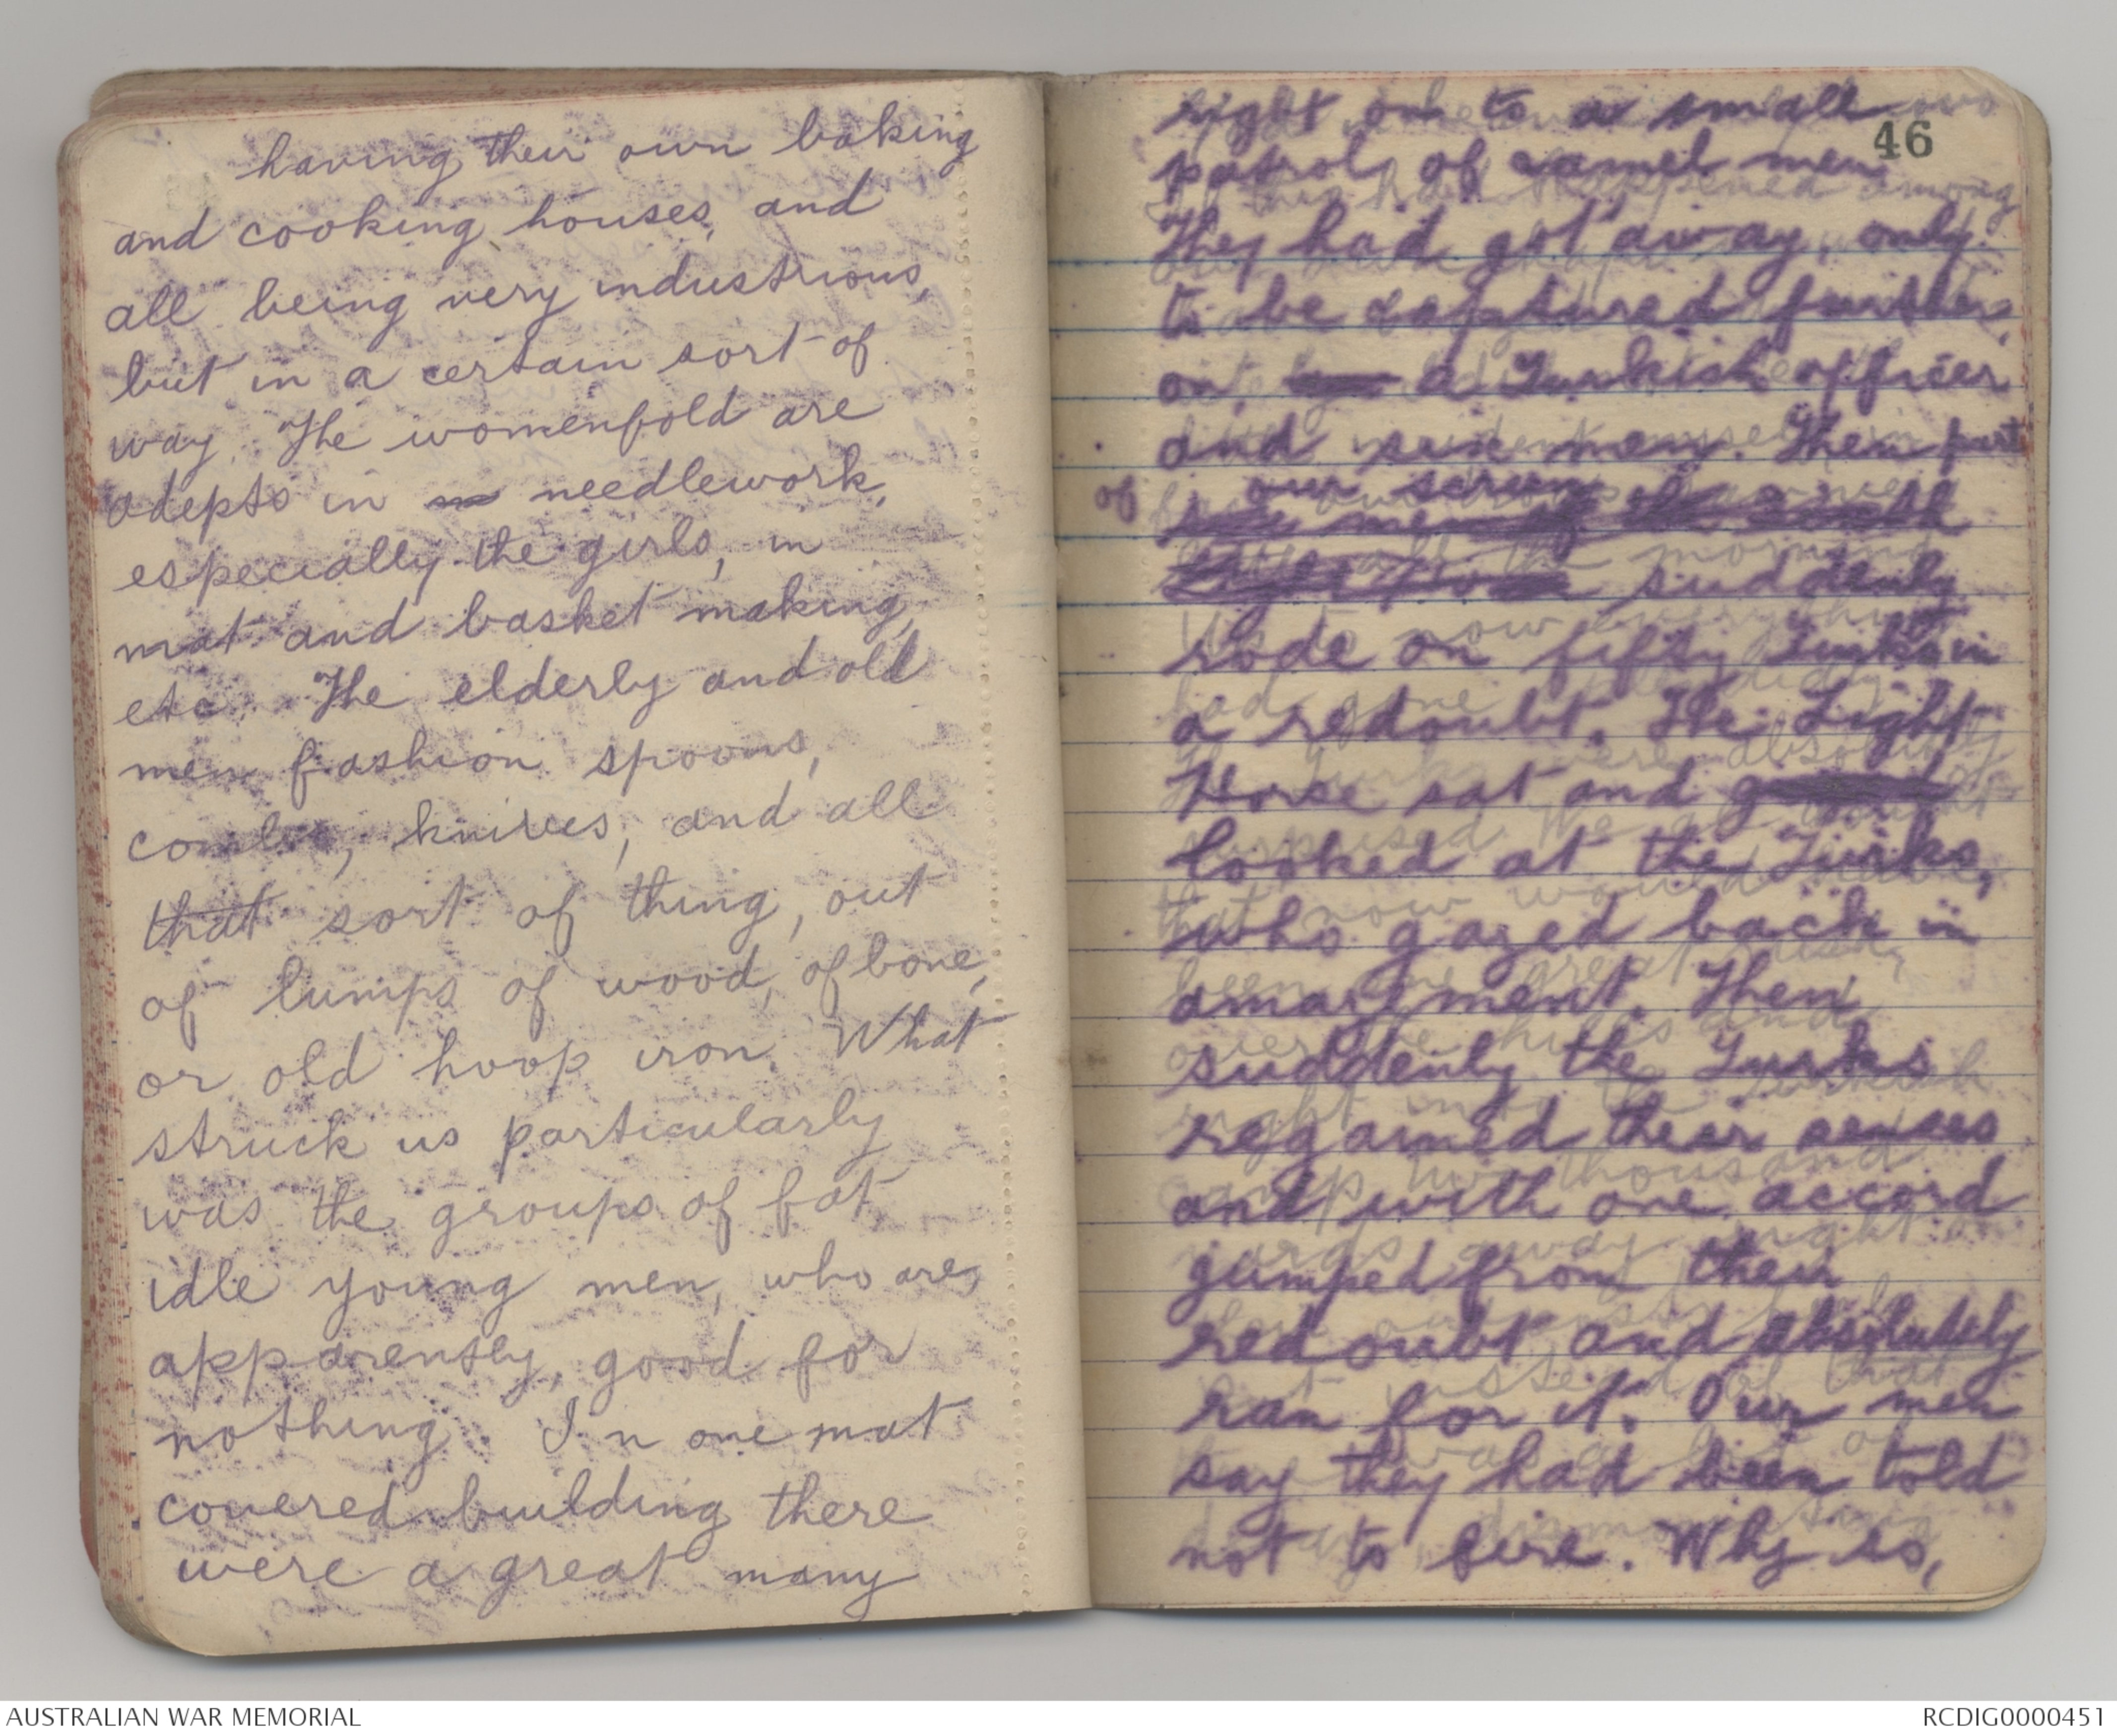 having their own baking
and cooking houses, and
all being very industrious,
but in a certain sort of
way. The womenfold are
adepts in needlework,
especially the girls, in
mat and basket making,
etc. The elderly and old
men fashion spoons,
combs, knives, and all
that sort of thing, out
of lumps of wood, of bone,
or old hoop iron. What
struck us particularly
was the groups of fat,
idle young men, who are,
apparently, good for
nothing. In one mat
covered building there
were a great many
46
right on to a small
patrol of camel men.
They had got away, only
to be captured further
on, a Turkish officer
and six men. Then part
of our screen
suddenly
rode on fifty Turks in
a redoubt. The Light
Horse sat and
looked at the Turks,
who gazed back in
amazement. Then
suddenly the Turks
regained their senses
and with one accord
jumped from their
redoubt and absolutely
ran for it. Our men
say they had been told
not to fire. Why so,
AUSTRALIAN WAR MEMORIAL
RCDIG0000451